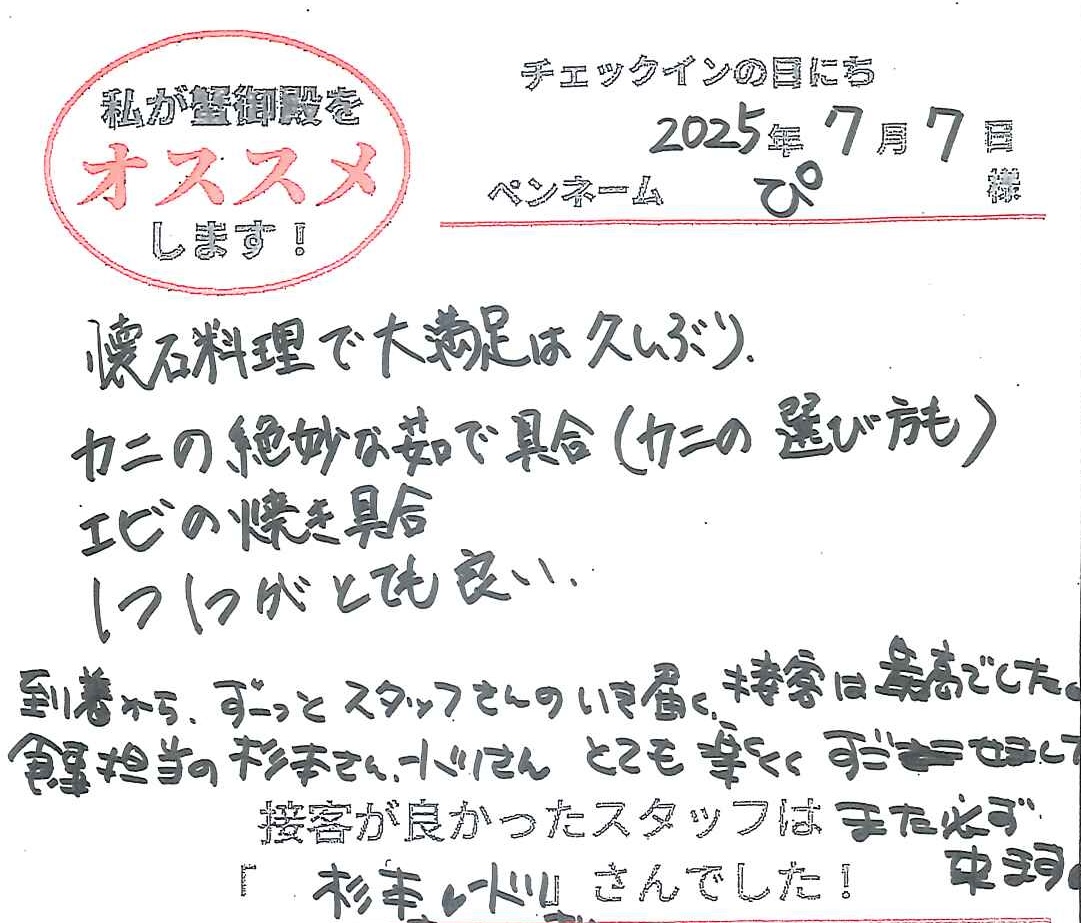 私が蟹御殿を
オススメ
します！
チェックインの日にち
2025年 7月7日
ペンネーム ぴ 様
懐石料理で大満足は久しぶり.
カニの絶妙な茹で具合(カニの選び方も)
エビの焼き具合
1つ1つがとても良い.
到着から、ずーっとスタッフさんのいき届く、接客は最高でした。
食事担当の杉本さん、小川さん とても楽しく すごせまして
接客が良かったスタッフは また必ず
来ます。
「 杉本 」さんでした！